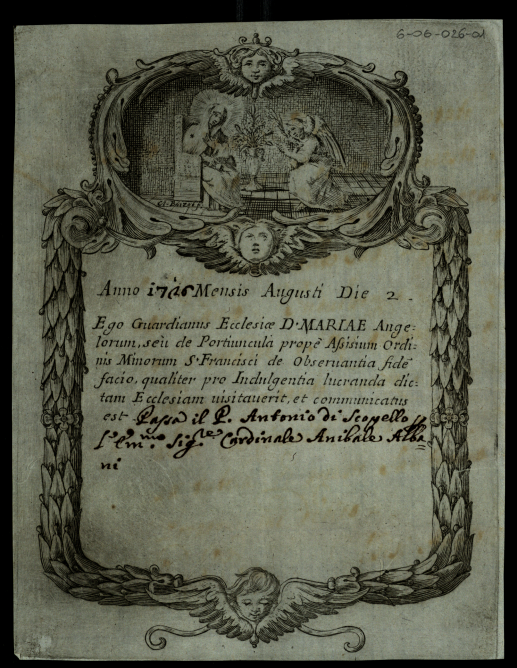 6-06-026-01
Anno 1726 Mensis Augusti Die 2.
Ego Guardianus Ecclesiæ D. MARIAE Ange=
lorum, seù de Portiuncula propè Assisium Ordi=
nis Minorum S. Francisci de Obseruantia fidē
facio, qualiter pro Indulgentia lucranda dic=
tam Ecclesiam uisitauerit, et communicatus
est Passa il P. Antonio di Scopello p
l'Em.mo Sig.re Cardinale Anibale Alba
ni